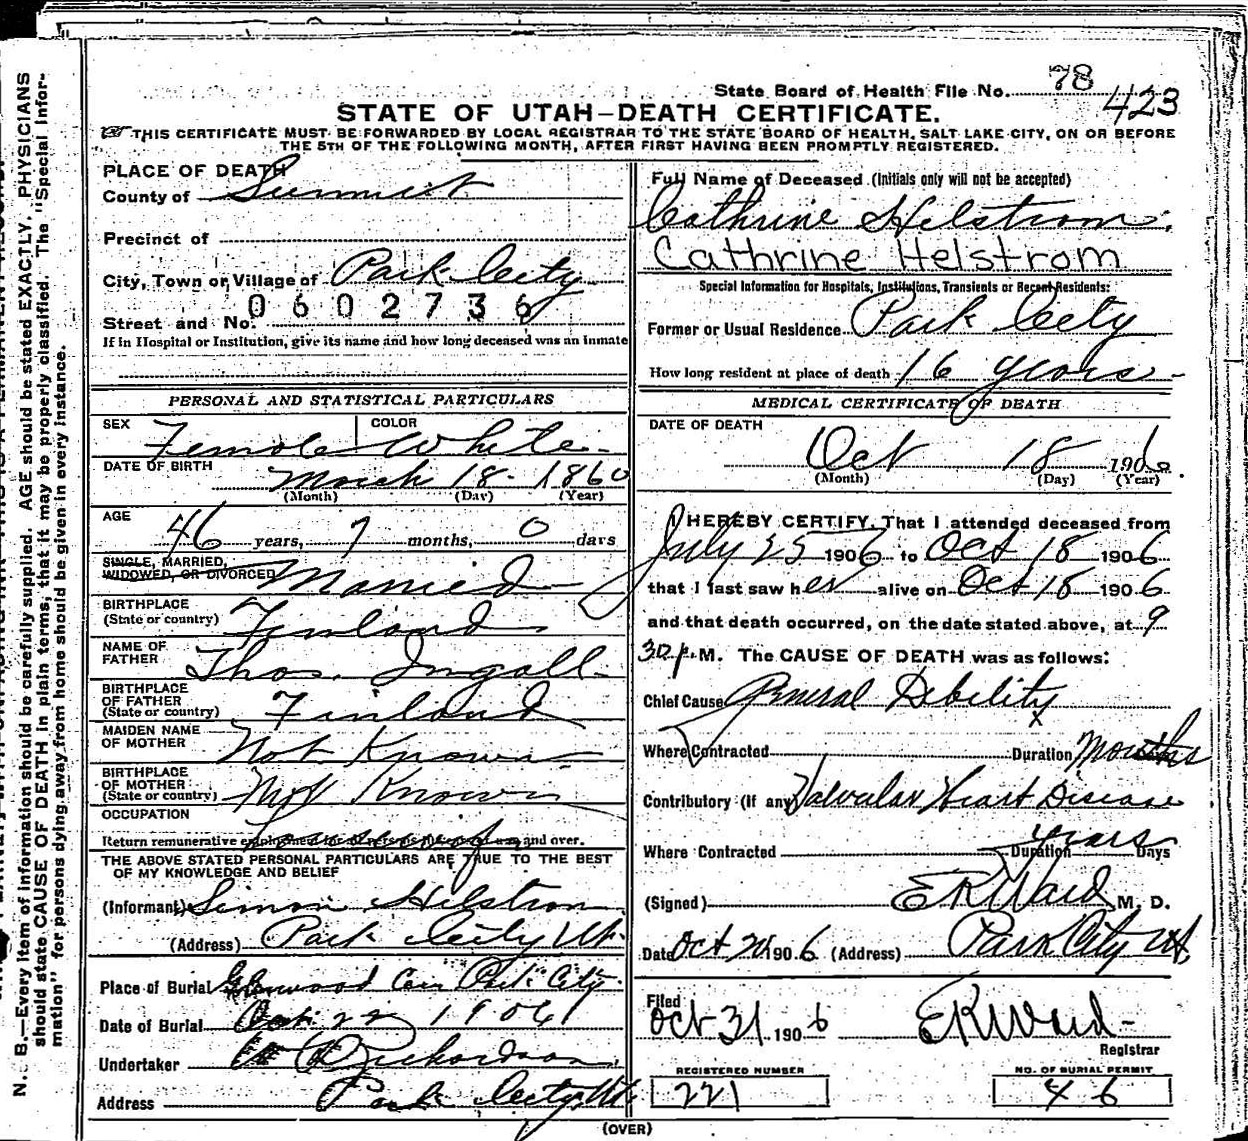 State Board of Health File No. 78
423
STATE OF UTAH—DEATH CERTIFICATE.
THIS CERTIFICATE MUST BE FORWARDED BY LOCAL REGISTRAR TO THE STATE BOARD OF HEALTH, SALT LAKE CITY, ON OR BEFORE
THE 5TH OF THE FOLLOWING MONTH, AFTER FIRST HAVING BEEN PROMPTLY REGISTERED.
PLACE OF DEATH
County of Summit
Precinct of
City, Town or Village of Park City
0602736
Street and No.
If in Hospital or Institution, give its name and how long deceased was an inmate
PERSONAL AND STATISTICAL PARTICULARS
SEX Female COLOR White
DATE OF BIRTH March 18 1860
(Month) (Day) (Year)
AGE 46 years, 7 months, 0 days
SINGLE, MARRIED,
WIDOWED, OR DIVORCED Married
BIRTHPLACE
(State or country) Finland
NAME OF
FATHER Thos. Ingall
BIRTHPLACE
OF FATHER
(State or country) Finland
MAIDEN NAME
OF MOTHER Not Known
BIRTHPLACE
OF MOTHER
(State or country) Not Known
OCCUPATION Housewife
Return remunerative and over.
THE ABOVE STATED PERSONAL PARTICULARS ARE TRUE TO THE BEST
OF MY KNOWLEDGE AND BELIEF
(Informant) Simon Helstrom
(Address) Park City Ut.
Place of Burial Glenwood Cem Park City
Date of Burial Oct 22 1906
Undertaker Richardson
Address Park City, Ut.
Full Name of Deceased (Initials only will not be accepted)
Cathrine Helstrom.
Cathrine Helstrom
Special Information for Hospitals, Institutions, Transients or Recent Residents:
Former or Usual Residence Park City
How long resident at place of death 16 years
MEDICAL CERTIFICATE OF DEATH
DATE OF DEATH
Oct 18 1906.
(Month) (Day) (Year)
I HEREBY CERTIFY, That I attended deceased from
July 25 1906 to Oct 18 1906
that I last saw her alive on Oct 18 1906
and that death occurred, on the date stated above, at 9
30 p.M. The CAUSE OF DEATH was as follows:
Chief Cause General Debility
Where Contracted Duration Months
Contributory (If any) Valvular Heart Disease
years
Where Contracted Duration Days
(Signed) E R Ward M. D.
Date Oct 1906 (Address) Park City Ut
Filed
Oct 31 1906 E R Ward
Registrar
REGISTERED NUMBER
221
NO. OF BURIAL PERMIT
46
(OVER)
N. B.—Every item of information should be carefully supplied. AGE should be stated EXACTLY. PHYSICIANS
should state CAUSE OF DEATH in plain terms, that it may be properly classified. The "Special Infor-
mation" for persons dying away from home should be given in every instance.